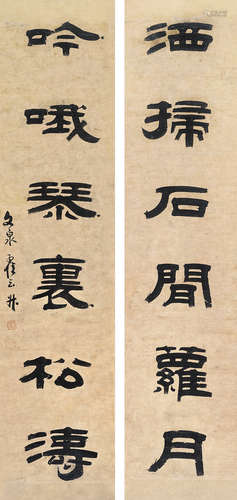 洒掃石間蘿月
吟哦琴裏松濤
文泉